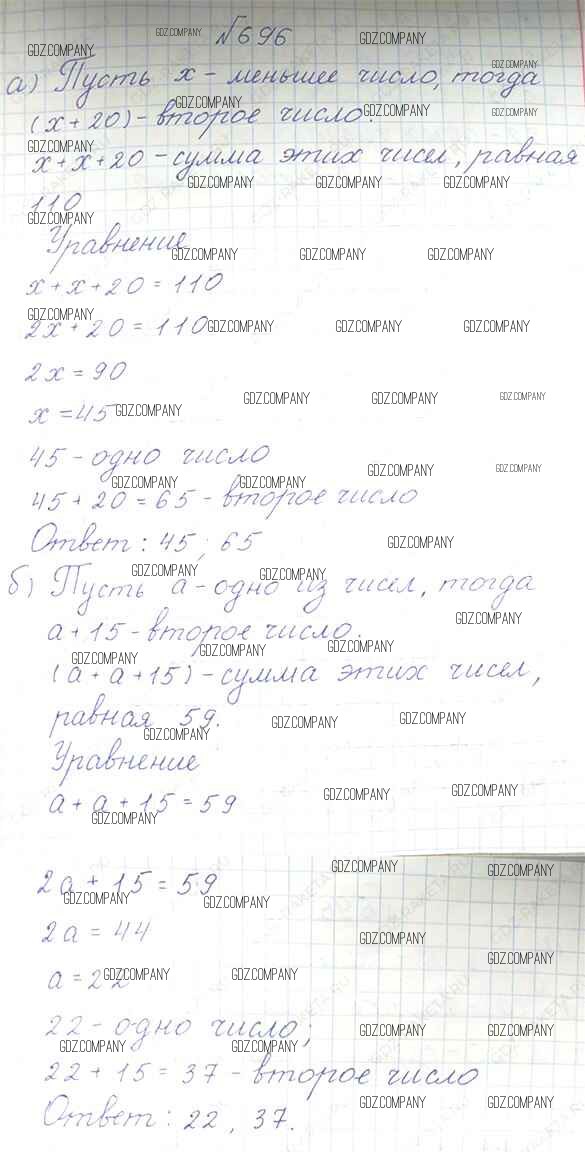 №696
а) Пусть х - меньшее число, тогда
(х + 20) - второе число.
х + х + 20 - сумма этих чисел, равная
110
Уравнение
х + х + 20 = 110
2х + 20 = 110
2х = 90
х = 45
45 - одно число
45 + 20 = 65 - второе число
Ответ: 45; 65
б) Пусть а - одно из чисел, тогда
а + 15 - второе число.
(а + а + 15) - сумма этих чисел,
равная 59.
Уравнение
а + а + 15 = 59
2а + 15 = 59
2а = 44
а = 22
22 - одно число;
22 + 15 = 37 - второе число
Ответ: 22, 37.
GDZ.COMPANY